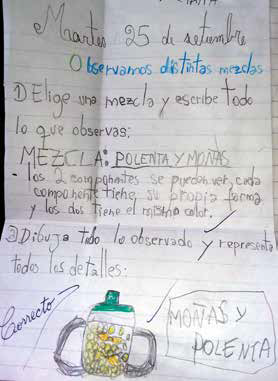 Martes 25 de setiembre
Observamos distintas mezclas
1) Elige una mezcla y escribe todo
lo que observas:
MEZCLA: POLENTA Y MOÑAS
- los 2 componentes se pueden ver, cada
componente tiene su propia forma
y los dos tiene el mismo color.
2) Dibuja todo lo observado y representa
todos los detalles:
Correcto
MOÑAS Y
POLENTA